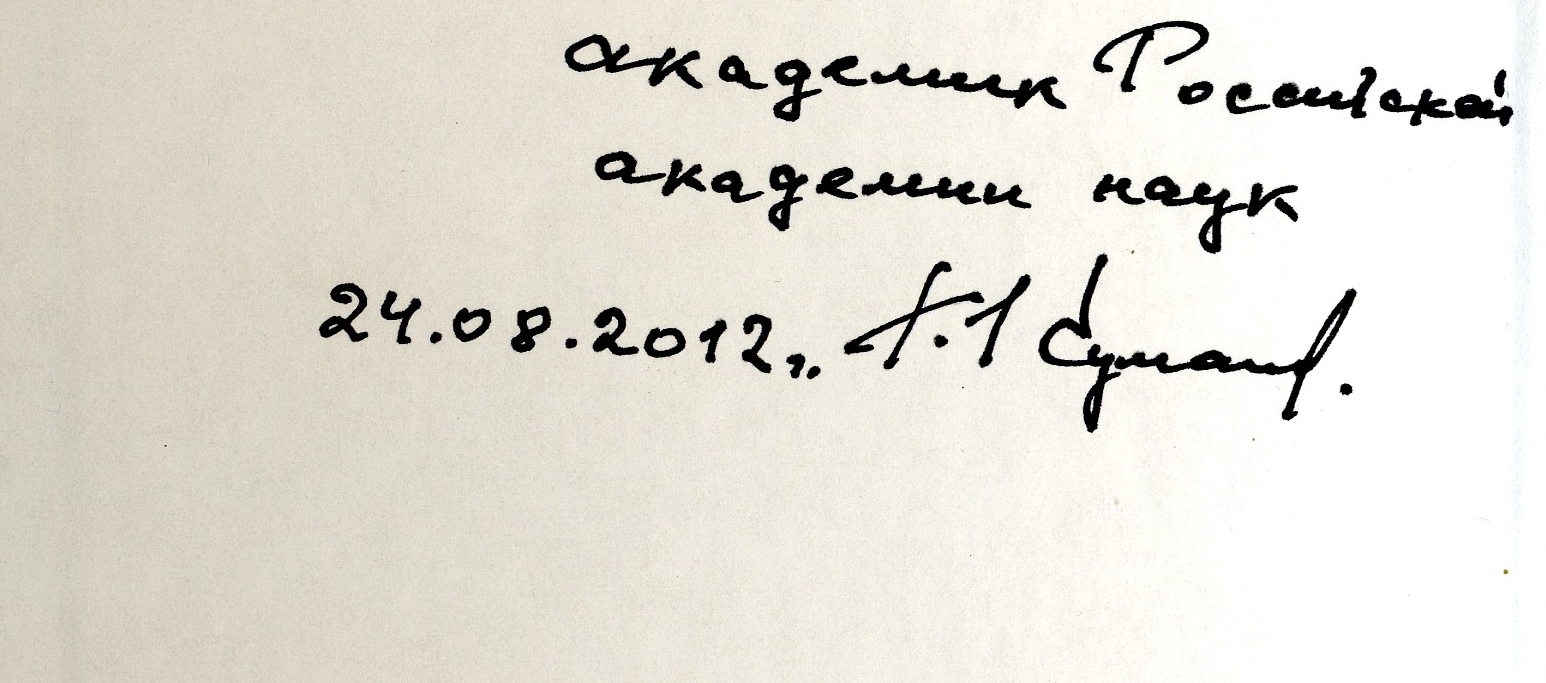 академик Российской
академии наук
24.08.2012г.